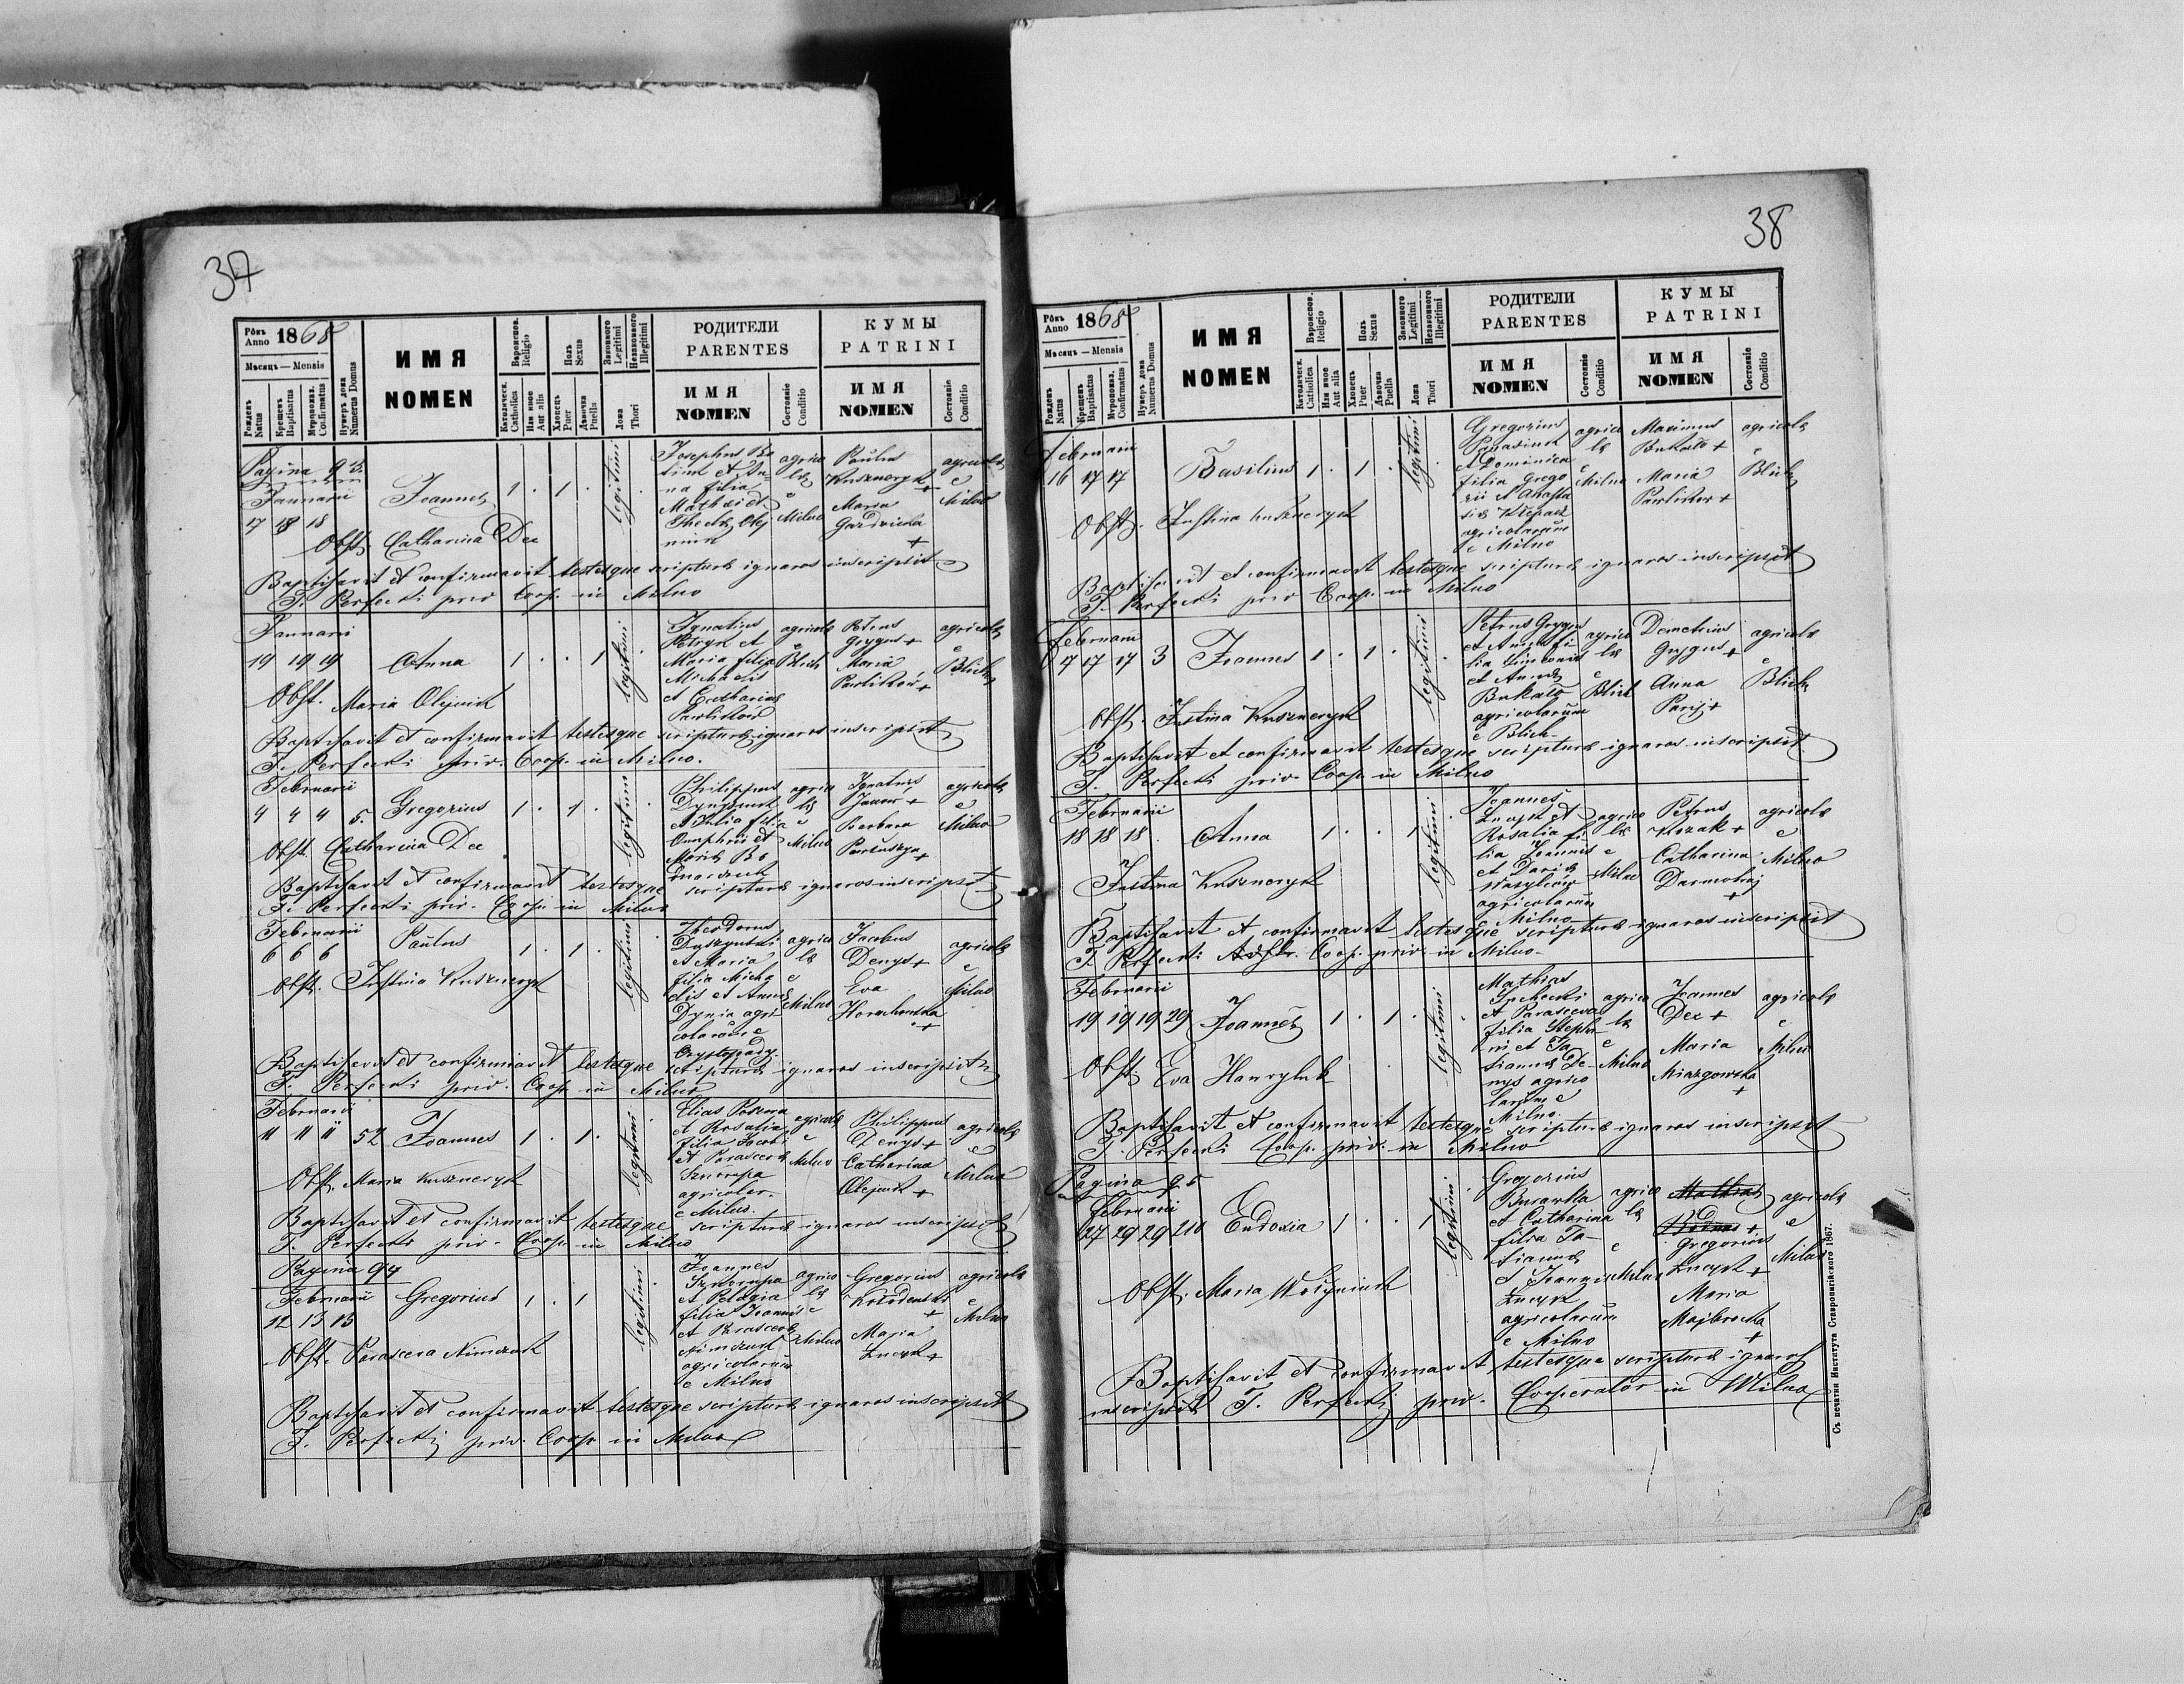 37
Рôкъ Anno 1868
Мѣсяць — Mensis
Рожденъ Natus
Крещенъ Baptisatus
Мѵропомаз. Confirmatus
Нумеръ дома Numerus Domus
ИМЯ
NOMEN
Вѣроисповѣд. Religio
Католическ. Catholica
Или иное Aut alia
Полъ Sexus
Хлопець Puer
Дѣвочка Puella
Законного Legitimi
Незаконного Illegitimi
Лона Thori
РОДИТЕЛИ
PARENTES
ИМЯ
NOMEN
Состояніе Conditio
КУМЫ
PATRINI
ИМЯ
NOMEN
Состояніе Conditio
Pagina 93
Januarii
17 18 18
Joannes 1 . 1 . legitimi
Josephus
et An-
na filia
agrico
lae
e
Milno
Paulus
Kuszneryk +
Maria
+
agricola
e
Milno
Obst. Catharina Dec
Baptisavit et confirmavit testesque scripturae ignaros inscripsit
T. Perfecki priv. Coop. in Milno
Januarii
19 19 19 Anna 1 . . 1 legitimi
Ignatius
Petryk et
Maria filia
Michaelis
et Eucharias
Pawlików
agricola
e
Blich
Petrus
Grygus +
Maria
Pawlików +
agricola
e
Blich
Obst. Maria Olejnik
Baptisavit et confirmavit testesque scripturae ignaros inscripsit
T. Perfecki priv. Coop. in Milno.
Februarii
4 4 4 5 Gregorius 1 . 1 . legitimi
Philippus
et Julia filia
Onuphrii et
agrico
lae
e
Milno
Ignatius
+
Barbara
+
agricola
e
Milno
Obst. Catharina Dec
Baptisavit et confirmavit testesque scripturae ignaros inscripsit
T. Perfecki priv. Coop. in Milno
Februarii
6 6 6 Paulus 1 . 1 . legitimi
Theodorus
et Maria
filia Micha
elis et Annae
Dynia agri
colarum e
agrico
lae
e
Milno
Jacobus
Denys +
Eva
Horochowska
+
agricola
e
Milno
Obst. Justina Kuszneryk
Baptisavit et confirmavit testesque scripturae ignaros inscripsit
T. Perfecki priv. Coop. in Milno
Februarii
11 11 11 52 Joannes 1 . 1 . legitimi
Elias
et Rosalia
filia Jacobi
et Parascevae
Sznurupa
agricolar.
e Milno.
agricola
e
Milno
Philippus
Denys +
Catharina
Olejnik +
agricola
e
Milno
Obst. Maria Kuszneryk
Baptisavit et confirmavit testesque scripturae ignaros inscripsit
T. Perfecki priv. Coop. in Milno
Pagina 94
Februarii
12 13 13 Gregorius 1 . 1 legitimi
Joannes
Sznurupa
et Pelagia
filia Joannis
et Parascevae
Nimczuk
agricolarum
e Milno
agrico
lae
e
Milno
Gregorius
+
Maria
Zuczyk +
agricola
e
Milno
Obst. Parasceva Nimczuk
Baptisavit et confirmavit testesque scripturae ignaros inscripsit
T. Perfecki priv. Coop. in Milno
38
Рôкъ Anno 1868
Мѣсяць — Mensis
Рожденъ Natus
Крещенъ Baptisatus
Мѵропомаз. Confirmatus
Нумеръ дома Numerus Domus
ИМЯ
NOMEN
Вѣроисповѣд. Religio
Католическ. Catholica
Или иное Aut alia
Полъ Sexus
Хлопець Puer
Дѣвочка Puella
Законного Legitimi
Незаконного Illegitimi
Лона Thori
РОДИТЕЛИ
PARENTES
ИМЯ
NOMEN
Состояніе Conditio
КУМЫ
PATRINI
ИМЯ
NOMEN
Состояніе Conditio
Februarii
16 17 17 Basilius 1 . 1 . legitimi
Gregorius
et Dominica
filia Grego
rii et Anasta
siae
agricolarum
e Milno
agrico
lae
e
Milno
Maximus
Bukało +
Maria
Pawlików +
agricola
e
Blich
Obst. Justina Kuszneryk
Baptisavit et confirmavit testesque scripturae ignaros inscripsit
T. Perfecki priv Coop. in Milno
Februarii
17 17 17 3 Joannes 1 . 1 . legitimi
Petrus Grygus
et Anna fi
lia Simeonis
et Annae
Bukało
agricolarum
e Blich
agrico
lae
e
Blich
Demetrius
Grygus +
Anna
+
agricola
e
Blich
Obst. Justina Kuszneryk
Baptisavit et confirmavit testesque scripturae ignaros inscripsit
T. Perfecki priv. Coop. in Milno
Februarii
18 18 18 . Anna 1 . . 1 legitimi
Joannes
Zuczyk et
Rosalia fi
lia Joannis
et Dariae
Wasylców
agricolarum
e Milno
agrico
lae
e
Milno
Petrus
Kozak +
Catharina
Darmohraj
+
agricola
e
Milno
Justina Kuszneryk
Baptisavit et confirmavit testesque scripturae ignaros inscripsit
T. Perfecki Coop. priv. in Milno
Februarii
19 19 19 29 Joannes 1 . 1 . legitimi
Mathias
et Parasceva
filia Stepha-
ni et Ta-
tiannae De-
nys agrico
larum e
Milno.
agrico
lae
e
Milno
Joannes
Dec +
Maria
Miazgowska
+
agricola
e
Milno
Obst. Eva Hawryluk
Baptisavit et confirmavit testesque scripturae ignaros inscripsit
T. Perfecki Coop. priv. in Milno
Pagina 95
Februarii
27 29 29 210 Eudoxia 1 . . 1 legitimi
Gregorius
Burawka
et Catharina
filia Ta-
tiannae
et Joannis
Zuczyk
agricolarum
e Milno
agrico
lae
e
Milno
Mathias
Gregorius
Zuczyk +
Maria
+
agricola
e
Milno
Obst. Maria
Baptisavit et confirmavit testesque scripturae ignaros
inscripsit T. Perfecki priv. Cooperator in Milno
Съ печатни Института Ставропигійского 1867.